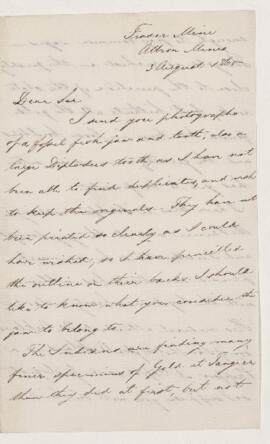 Frazer Mine
Albion Mines
3 August 1865
Dear Sir
I send you photographs
of a fossil fish jaw and tooth, also a
large Diplodus tooth, as I have not
been able to find duplicates, and wish
to keep the originals. They have not
been printed so clearly as I could
have wished, so I have pencilled
the outline on their backs. I should
like to know what you consider the
jaw to belong to.
The Indians are finding many
finer specimens of Gold at Tangier
than they did at first, but not